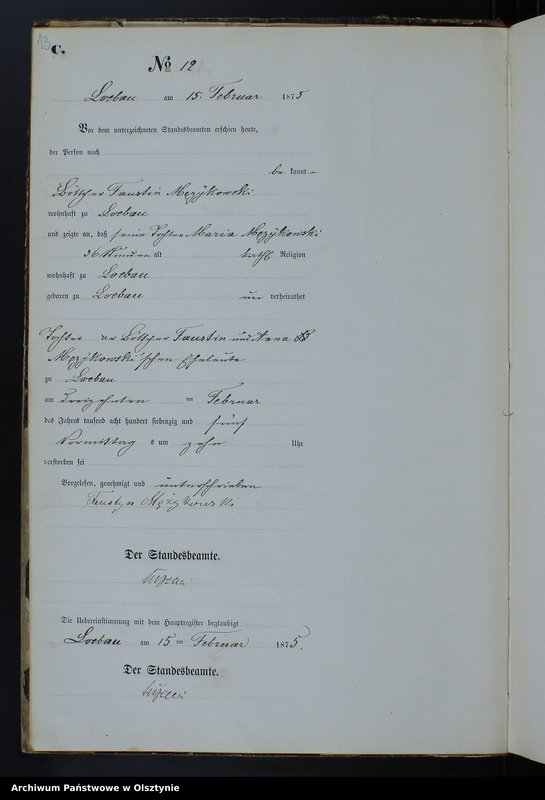 13
C.
No 12
Loebau am 15. Februar 1875
Vor dem unterzeichneten Standesbeamten erschien heute,
der Person nach
be kannte
Böttcher Faustin
wohnhaft zu Loebau
und zeigte an, daß seine Tochter Maria
36 Stunden alt kath. Religion
wohnhaft zu Loebau
geboren zu Loebau un verheirathet
Tochter der Böttcher Faustin und Anna
'schen Eheleute
zu Loebau
am dreizehnten ten Februar
des Jahres tausend acht hundert siebenzig und fünf
Vormittag s um zehn Uhr
verstorben sei
Vorgelesen, genehmigt und unterschrieben
Der Standesbeamte.
Die Uebereinstimmung mit dem Hauptregister beglaubigt
Loebau am 15 ten Februar 1875.
Der Standesbeamte.
Archiwum Państwowe w Olsztynie